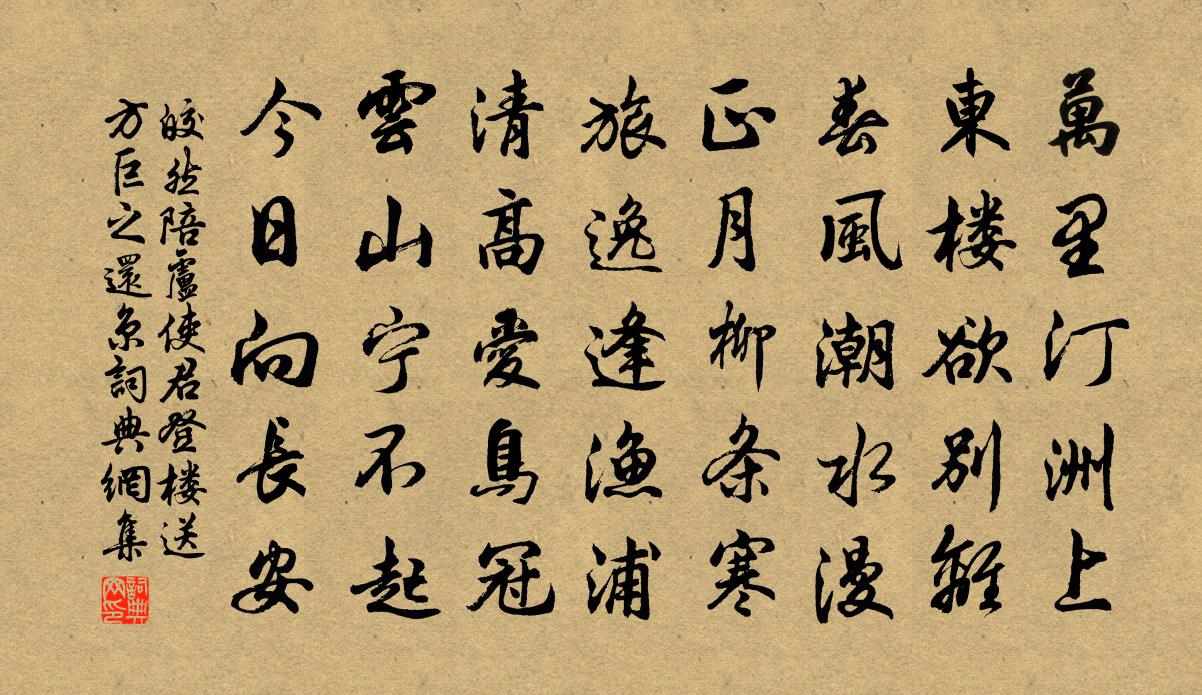 萬里汀洲上
東楼欲別離
春風潮水漫
正月柳条寒
旅逸逢漁浦
清高愛鳥冠
雲山宁不起
今日向長安
皎然陪盧使君登楼送
方巨之還京詞典網集
詞典
网印